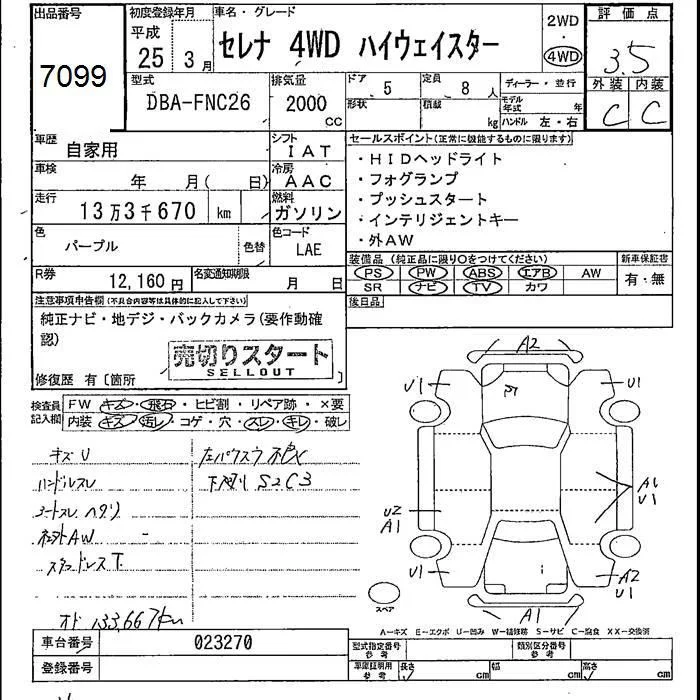 出品番号
7099
初度登録年月
平成
25年3月
車名・グレード
セレナ 4WD ハイウェイスター
2WD
・
4WD
評価点
3.5
外装 内装
C C
型式
DBA-FNC26
排気量
2000 cc
ドア 5
形状
定員 8人
積載 kg
ディーラー・並行
モデル年式 年
ハンドル 左・右
車歴
自家用
シフト
IAT
車検
年 月( 日)
冷房
AAC
走行
13万3千670 km
燃料
ガソリン
色
パープル
色替
色コード
LAE
R券
12,160円
名変通知期限
月 日
セールスポイント(正常に機能するものに限ります)
・HIDヘッドライト
・フォグランプ
・プッシュスタート
・インテリジェントキー
・外AW
装備品(純正品に限り○をつけてください)
PS PW ABS エアB AW
SR ナビ TV カワ
新車保証書
有・無
後日品
注意事項申告欄(不具合内容等は具体的に記入して下さい)
純正ナビ・地デジ・バックカメラ(要作動確
認)
売切りスタート
SELLOUT
修復歴 有〔箇所
検査員記入欄
FW キズ・飛石・ヒビ割・リペア跡・×要
内装 キズ・汚レ・コゲ・穴・スレ・キレ・破レ
キズU
ハンドルスレ
シートスレ ヘタリ
社外AW
スタッドレスT
オド 133,667km
下廻り S2C3
A2
U1
U1
A1
U1
U2
A1
U1
A2
U1
A1
スペア
A－キズ E－エクボ U－凹み W－補修跡 S－サビ C－腐食 XX－交換済
車台番号
023270
登録番号
型式指定番号
参考
類別区分番号
参考
車庫証明用
参考
長さ cm
幅 cm
高さ cm